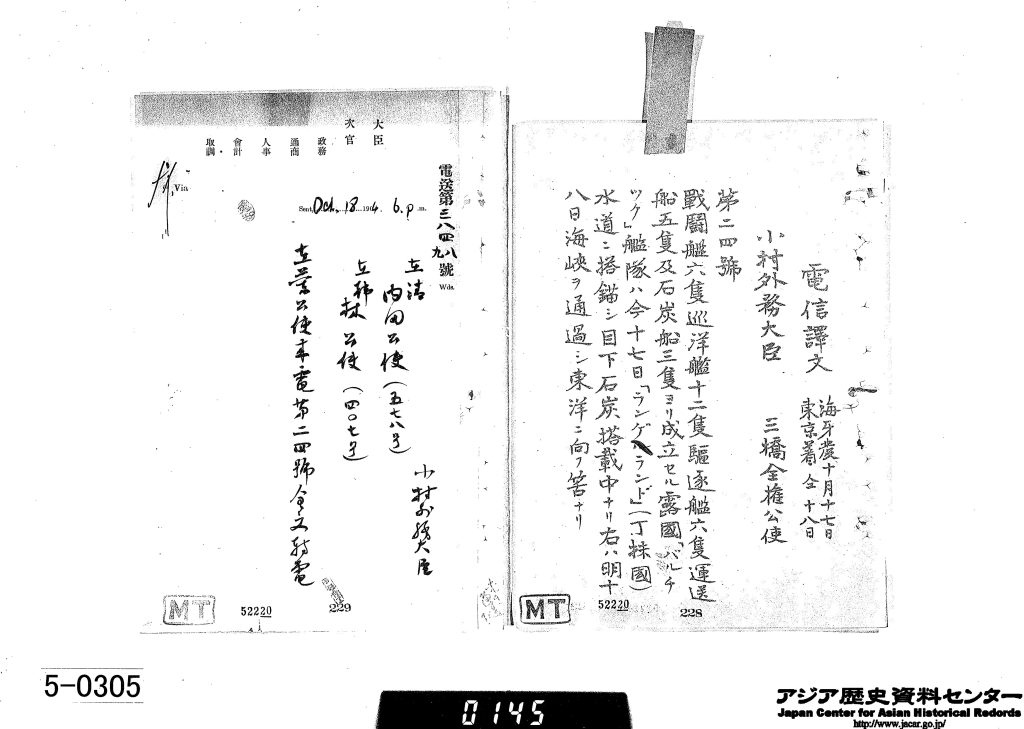 電信譯文
海牙發十月十七日
東京着仝十八日
小村外務大臣
三橋全権公使
第二四號
戰鬪艦六隻巡洋艦十二隻驅逐艦六隻運送
船五隻及石炭船三隻ヨリ成立セル露國「バルチ
ツク」艦隊ハ今十七日「ランゲランド」(丁抹國)
水道ニ搭錨シ目下石炭搭載中ナリ右ハ明十
八日海峽ヲ通過シ東洋ニ向フ筈ナリ
MT
52220
228
大臣
次官
政務
通商
人事
會計
取調
電送第三八四八號
九
Wds.
Sent, Oct. 18 1904 6. p.m.
Via
在清
内田公使(五七八号)
在韓
林公使(四〇七号)
小村外務大臣
在蘭公使来電第二四號全文轉電
MT
52220
229
5-0305
0145
アジア歴史資料センター
Japan Center for Asian Historical Records
http://www.jacar.go.jp/